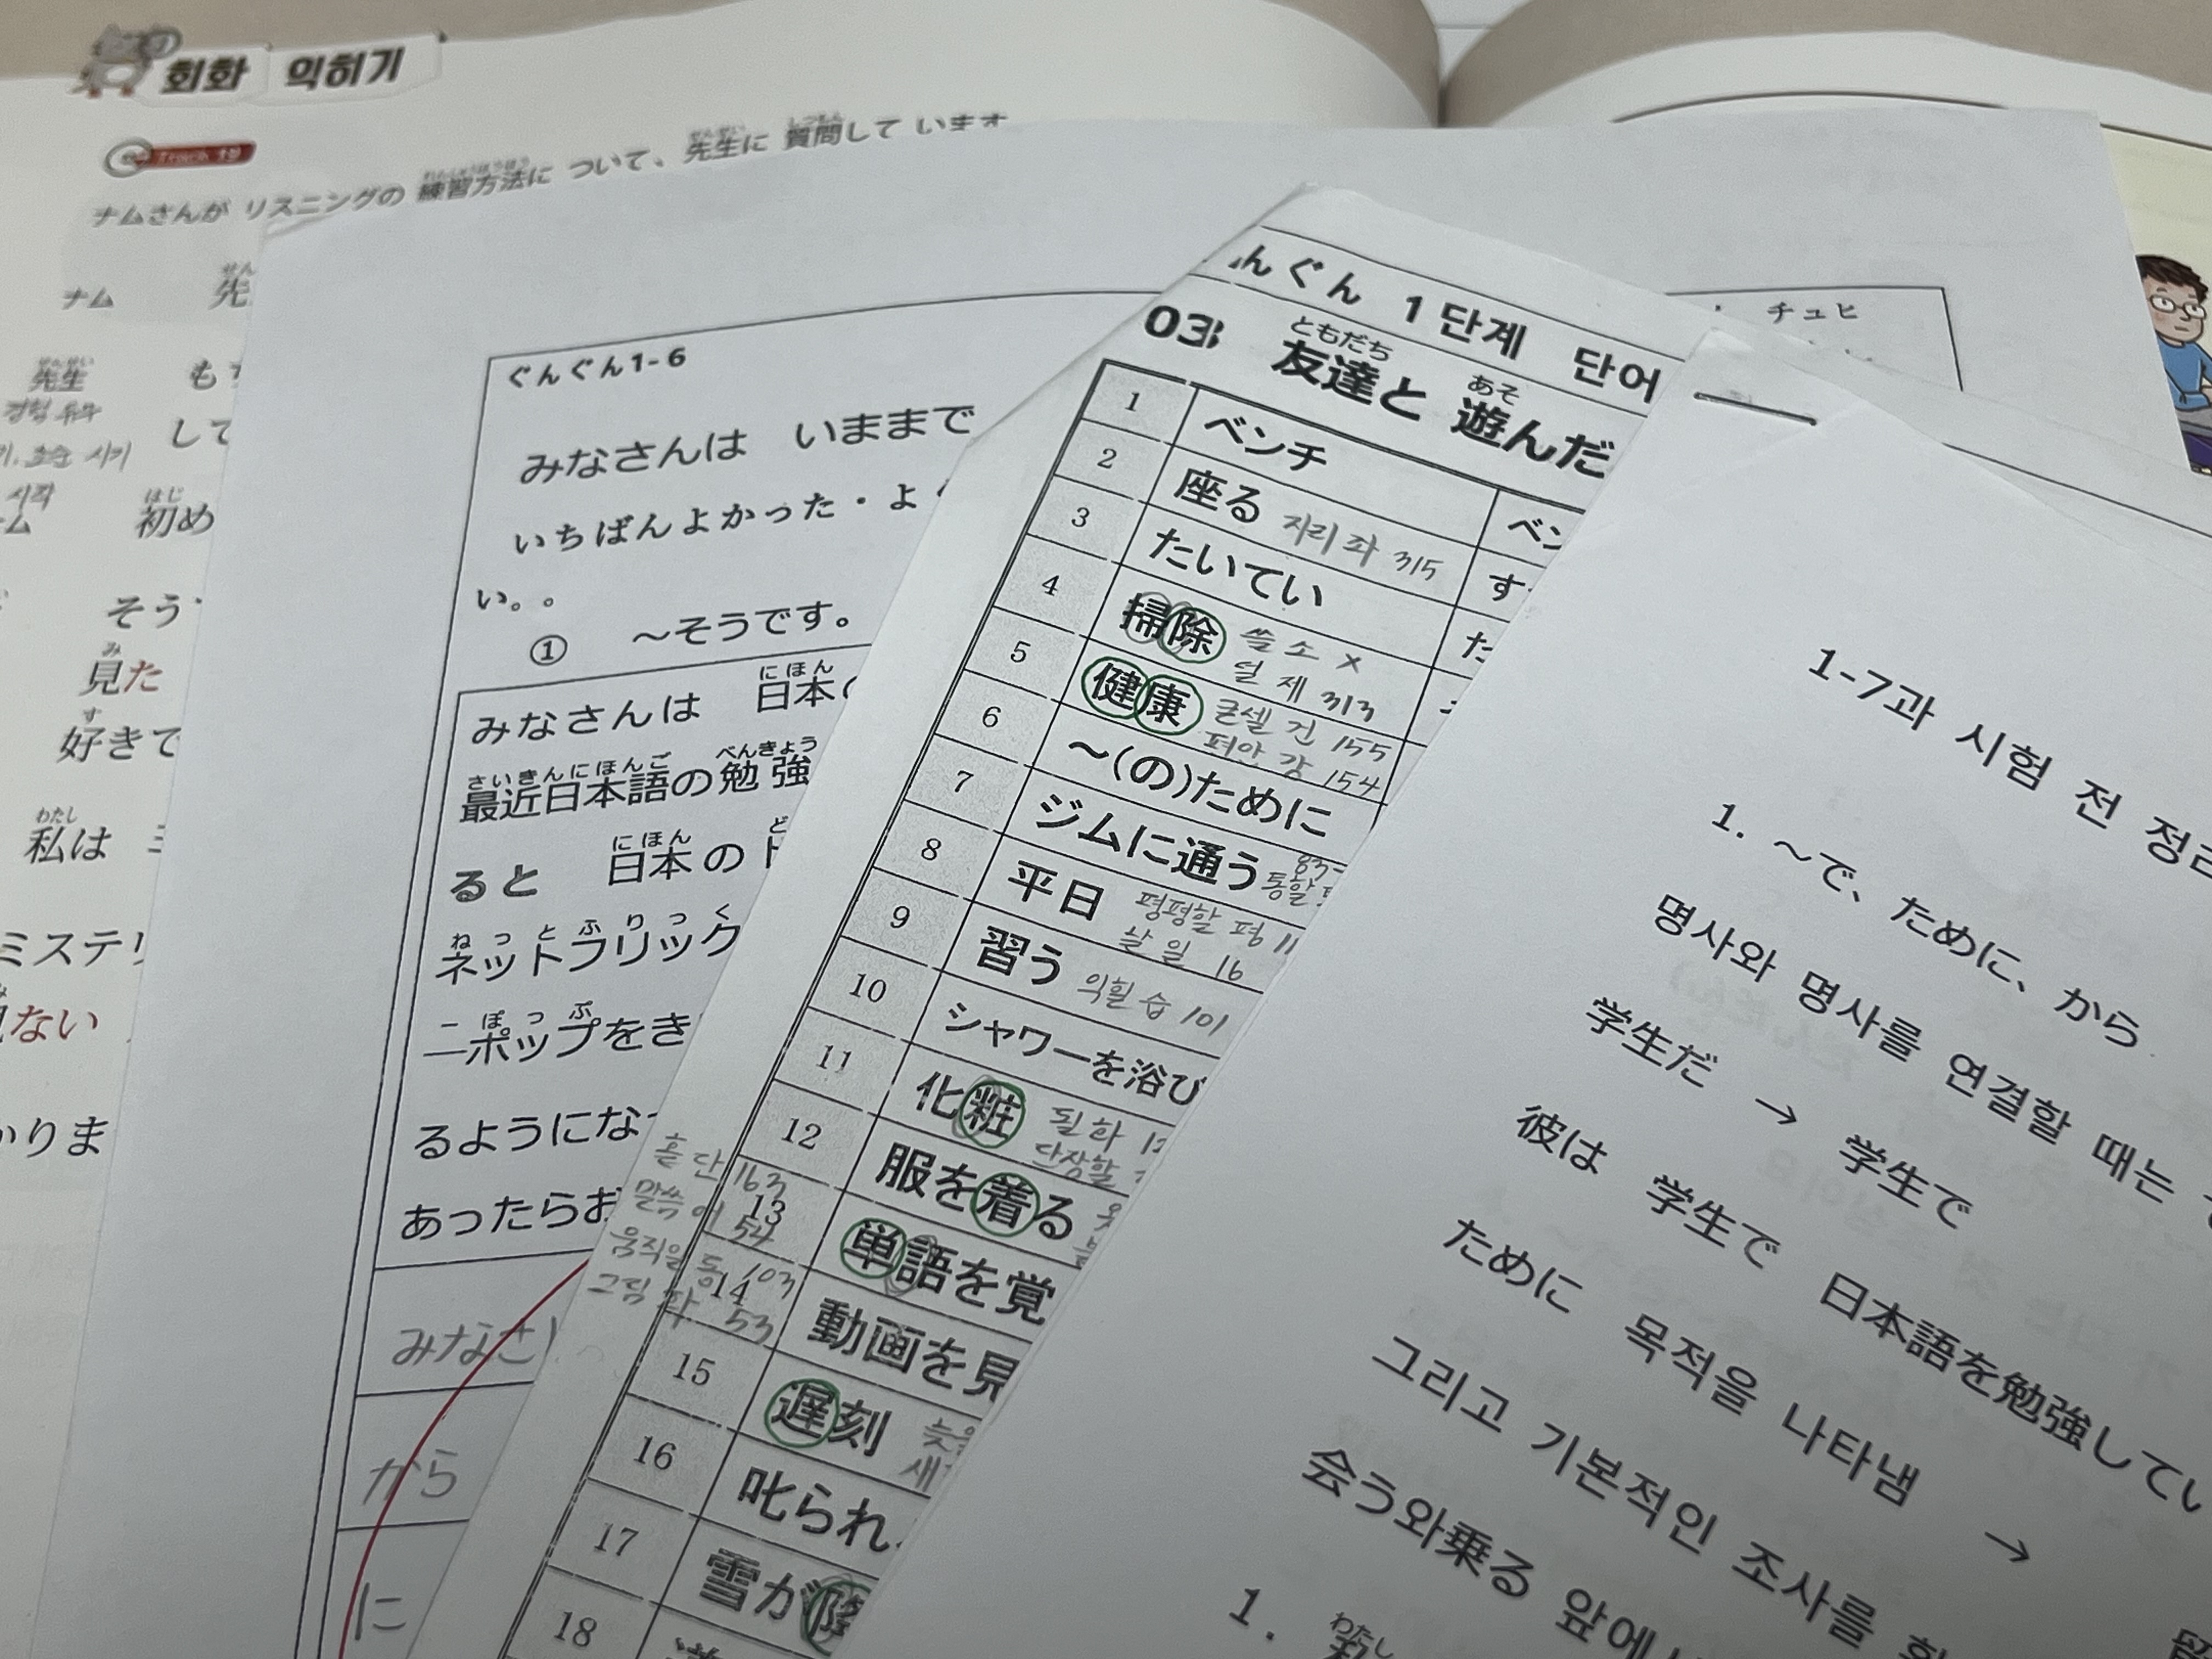 회화 익히기
Track 19
ナムさんが リスニングの 練習方法に ついて、先生に 質問して います
ナム
先生
も
して
初め
そう
見た
好きで
私は
ミステリ
ない
かりま
チュヒ
ぐんぐん1-6
みなさんは いままで
いちばんよかった・よ
い。。
① ～そうです。
みなさんは 日本の
最近日本語の勉強
ると 日本のド
ネットフリック
ーポップをき
るようになっ
あったらお
みなさん
から
に
んぐん 1단계 단어
03 友達と 遊んだ
1 ベンチ
2 座る 자리 좌 315
3 たいてい
4 掃除 쓸 소 x
덜 제 313
5 健康 굳셀 건 155
편안 강 154
6 ～(の)ために
7 ジムに通う
8 平日 평평할 평 11
날 일 16
9 習う 익힐 습 101
10 シャワーを浴び
11 化粧 될 화
단장할
12 服を着る
홑 단 163
말씀 어 54
13 単語を覚
움직일 동 103
그림 화 53
14 動画を見
15 遅刻
16 叱られ
17 雪が降
18
1-7과 시험 전 정리
1. ～で、ために、から
명사와 명사를 연결할 때는
学生だ → 学生で
彼は 学生で 日本語を勉強してい
ために 목적을 나타냄 →
그리고 기본적인 조사를
会う와乗る 앞에
1. 私